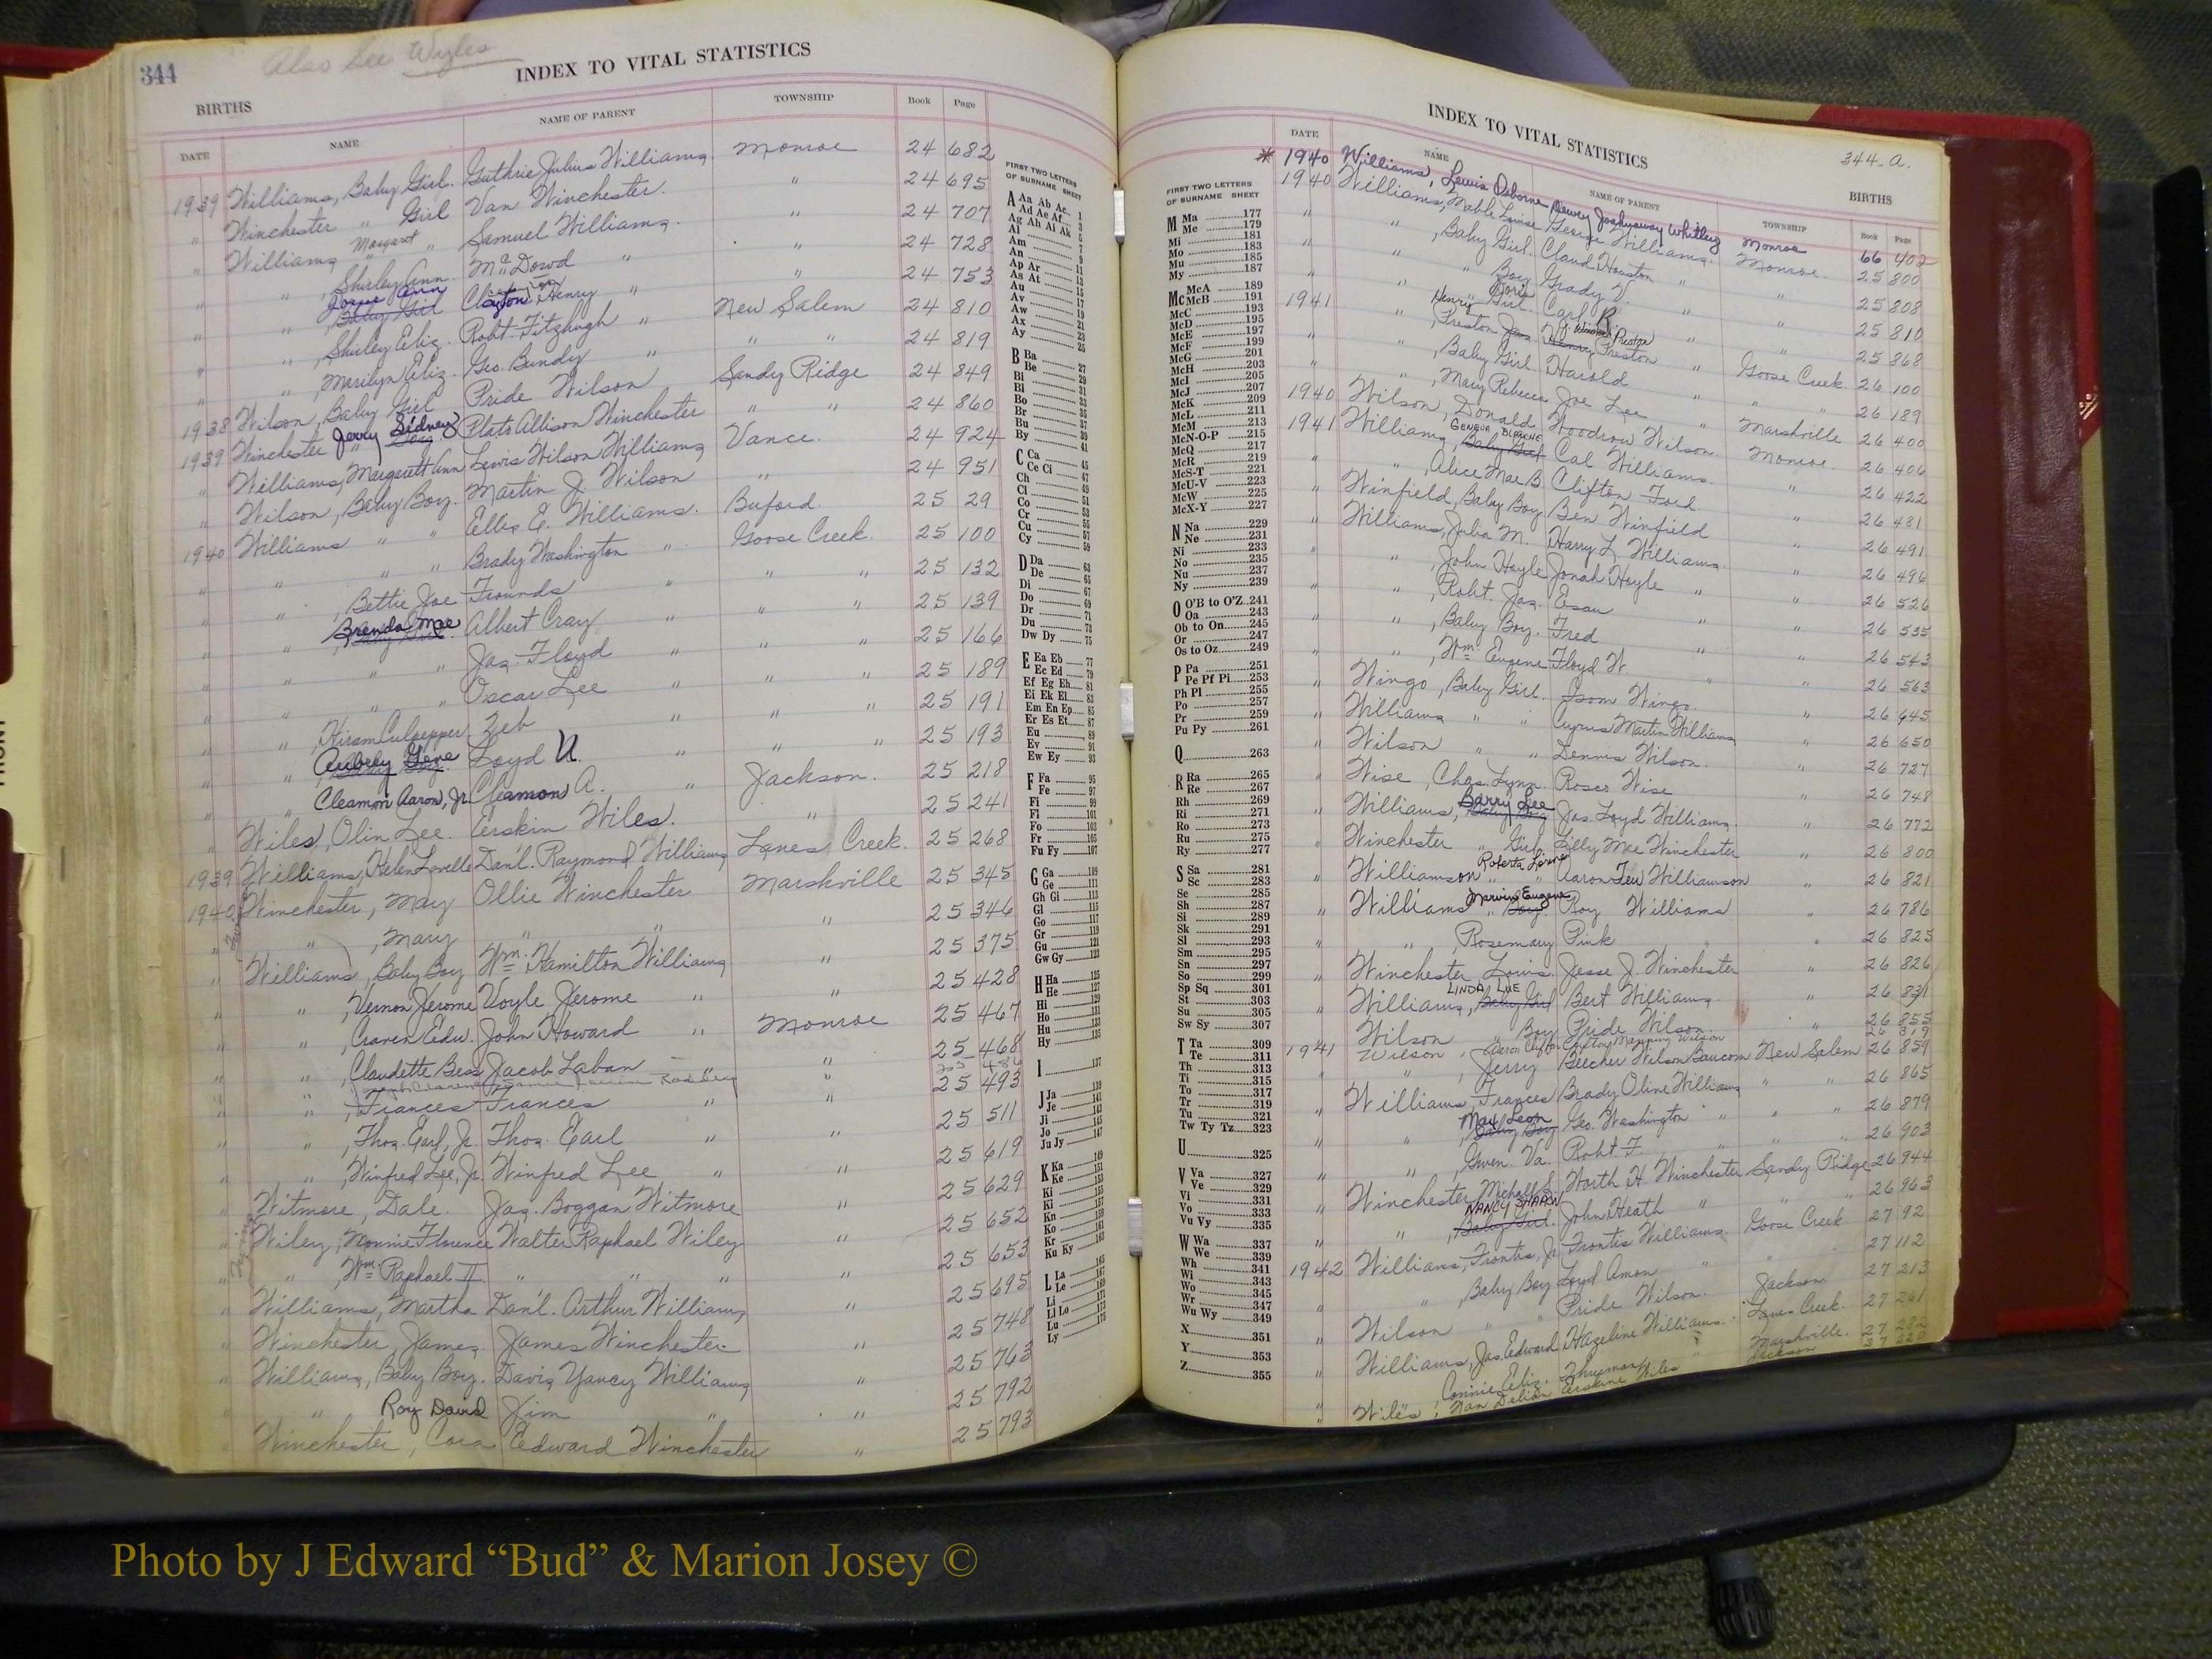 344
Also See Wyles
INDEX TO VITAL STATISTICS
BIRTHS
DATE NAME NAME OF PARENT TOWNSHIP Book Page
1939 Williams, Baby Girl. Guthrie Julius Williams. Monroe 24 682
" Winchester " Girl Van Winchester. " 24 695
" Williams Margaret " Samuel Williams. " 24 707
" " , Shirley Ann. McDowd " " 24 728
" " , Baby Girl Henry " " 24 753
" " , Shirley Eliz. Robt. Fitzhugh " New Salem 24 810
" " , Marilyn Eliz. Geo. Bundy " " " 24 819
1938 Wilson, Baby Girl Pride Wilson Sandy Ridge 24 849
1939 Winchester Jerry Sidney Plato Allison Winchester " " 24 860
" Williams, Margarett Ann Lewis Wilson Williams Vance. 24 924
" Wilson, Baby Boy. Martin J. Wilson " 24 951
1940 Williams " " Ellis E. Williams. Buford. 25 29
" " " " Brady Washington " Goose Creek. 25 100
" " , Bettie Joe Frounds " " " 25 132
" " , Brenda Mae Albert Cray " " " 25 139
" " " " Jas. Floyd " " " 25 166
" " " " Oscar Lee " " " 25 189
" " , Hiram Culpepper. Zeb " " " 25 191
" " , Aubrey Gene Loyd U. " " " 25 193
" " , Cleamon Aaron, Jr. Cleamon A. " Jackson. 25 218
" Wiles, Olin Lee. Erskin Wiles. " 25 241
1939 Williams, Helen Lavelle Dan'l. Raymond Williams Lanes Creek. 25 268
1940 Winchester, Mary Ollie Winchester Marshville 25 345
" " , Mary " " " 25 346
" Williams, Baby Boy Wm. Hamilton Williams " 25 375
" " , Vernon Jerome Voyle Jerome " " 25 428
" " , Craven Edw. John Howard " Monroe 25 467
" " , Claudette Bess Jacob Laban " " 25 468
" " , Frances Frances " " 25 493
" " , Thos. Earl, Jr. Thos. Earl " 25 511
" " , Winfred Lee, Jr. Winfred Lee " " 25 619
" Witmore, Dale. Jas. Boggan Witmore " 25 629
" Wiley, Monnie Florence Walter Raphael Wiley " 25 652
" " , Wm. Raphael II " " " 25 653
" Williams, Martha Dan'l. Arthur Williams " 25 695
" Winchester, James. James Winchester. " 25 748
" Williams, Baby Boy. Davis Yancy Williams " 25 763
" " Roy David Jim " " 25 792
" Winchester, Cora Edward Winchester " 25 793
FIRST TWO LETTERS
OF SURNAME SHEET
A Aa Ab Ac.. 1
Ad Ae Af.... 3
Ag Ah Ai Ak 5
Al
Am
An
Ap Ar
As At
Au
Av
Aw
Ax
Ay
B Ba 27
Be 29
Bi
Bl
Bo
Br
Bu
By
C Ca
Ce Ci
Ch
Cl
Co
Cr
Cu
Cy
D Da 63
De 65
Di 67
Do 69
Dr 71
Du 73
Dw Dy 75
E Ea Eb 77
Ec Ed 79
Ef Eg Eh 81
Ei Ek El 83
Em En Ep 85
Er Es Et 87
Eu 89
Ev 91
Ew Ey 93
F Fa 95
Fe 97
Fi 99
Fl 101
Fo 103
Fr 105
Fu Fy 107
G Ga 109
Ge 111
Gh Gi 113
Gl 115
Go 117
Gr 119
Gu 121
Gw Gy 123
H Ha 125
He 127
Hi 129
Ho 131
Hu 133
Hy 135
I 137
J Ja 139
Je 141
Ji 143
Jo 145
Ju Jy 147
K Ka 149
Ke 151
Ki 153
Kl 155
Kn 157
Ko 159
Kr 161
Ku Ky 163
L La 165
Le 167
Li
Ll Lo
Lu
Ly
INDEX TO VITAL STATISTICS
344-A.
BIRTHS
DATE NAME NAME OF PARENT TOWNSHIP Book Page
FIRST TWO LETTERS
OF SURNAME SHEET
M Ma 177
Me 179
Mi 181
Mo 183
Mu 185
My 187
Mc McA 189
McB 191
McC 193
McD 195
McE 197
McF 199
McG 201
McH 203
McI 205
McJ 207
McK 209
McL 211
McM 213
McN-O-P 215
McQ 217
McR 219
McS-T 221
McU-V 223
McW 225
McX-Y 227
N Na 229
Ne 231
Ni 233
No 235
Nu 237
Ny 239
O O'B to O'Z..241
Oa 243
Ob to On 245
Or 247
Os to Oz 249
P Pa 251
Pe Pf Pi 253
Ph Pl 255
Po 257
Pr 259
Pu Py 261
Q 263
R Ra 265
Re 267
Rh 269
Ri 271
Ro 273
Ru 275
Ry 277
S Sa 281
Sc 283
Se 285
Sh 287
Si 289
Sk 291
Sl 293
Sm 295
Sn 297
So 299
Sp Sq 301
St 303
Su 305
Sw Sy 307
T Ta 309
Te 311
Th 313
Ti 315
To 317
Tr 319
Tu 321
Tw Ty Tz 323
U 325
V Va 327
Ve 329
Vi 331
Vo 333
Vu Vy 335
W Wa 337
We 339
Wh 341
Wi 343
Wo 345
Wr 347
Wu Wy 349
X 351
Y 353
Z 355
* 1940 Williams, Lewis Osborne Dewey Whitley Monroe 66 402
1940 Williams, Mable Louise George Williams. Monroe 25 800
" " , Baby Girl. Claud Houston " " 25 808
" " " Boy Grady V. " " 25 810
" " Doris Girl Carl R " " 25 868
1941 " Henry Preston Jas. Henry Preston " Goose Creek. 26 100
" " , Baby Girl. Harold " " " 26 189
" " , Mary Rebecca Joe Lee " Marshville 26 400
1940 Wilson, Donald Woodrow Wilson Monroe. 26 406
1941 Williams, GENEVA BLANCHE Baby Girl Cal Williams. " 26 422
" " , Alice Mae B. Clifton Ford. " 26 481
" Winfield, Baby Boy Ben Winfield " 26 491
" Williams, Julia M. Harry L. Williams " 26 496
" " , John Hoyle Jonah Hoyle " " 26 526
" " , Robt. Jas. Esau " 26 535
" " , Baby Boy. Fred " " 26 543
" " , Wm. Eugene Floyd W. " " 26 563
" Wingo, Baby Girl. Isom Wingo. " 26 645
" Williams " " Cyrus Martin Williams " 26 650
" Wilson " " Dennis Wilson. " 26 727
" Wise, Chas. Lynn. Rosco Wise " 26 748
" Williams, Barry Lee Baby Boy Jas. Loyd Williams. " 26 772
" Winchester " Girl Lilly Mee Winchester " 26 800
" Williamson Roberta " Aaron Tew Williamson " 26 821
" Williams Marvin Eugene " Boy. Roy Williams " 26 786
" " , Rosemary Pink " " 26 825
" Winchester, Louis. Jesse J. Winchester " 26 826
" Williams, LINDA LUE Baby Girl Bert Williams. " 26 831
" Wilson " Boy Pride Wilson. " 26 855
1941 Wilson, Wilson
" " , Jerry Beecher Wilson Baucom New Salem 26 859
" Williams, Frances Brady Oline Williams " " 26 865
" " , Max Leon Baby Boy Geo. Washington " " " 26 879
" " , Gwen. Va. Robt F. " " " 26 903
" Winchester, Michall S. Worth H. Winchester Sandy Ridge 26 944
" " , NANCY SHARON Baby Girl. John Heath " " " 26 963
1942 Williams, Frontis, Jr. Frontis Williams. Goose Creek. 27 92
" " , Baby Boy Loyd Amon " " 27 112
" Wilson " " Pride Wilson. Jackson 27 213
" Williams, Jas. Edward Hazeline Williams. Lanes Creek. 27 261
" " Connie Eliz. Thurman " Marshville. 27 282
" Wiles, Nan Erskine Wiles Jackson
Photo by J Edward “Bud” & Marion Josey ©